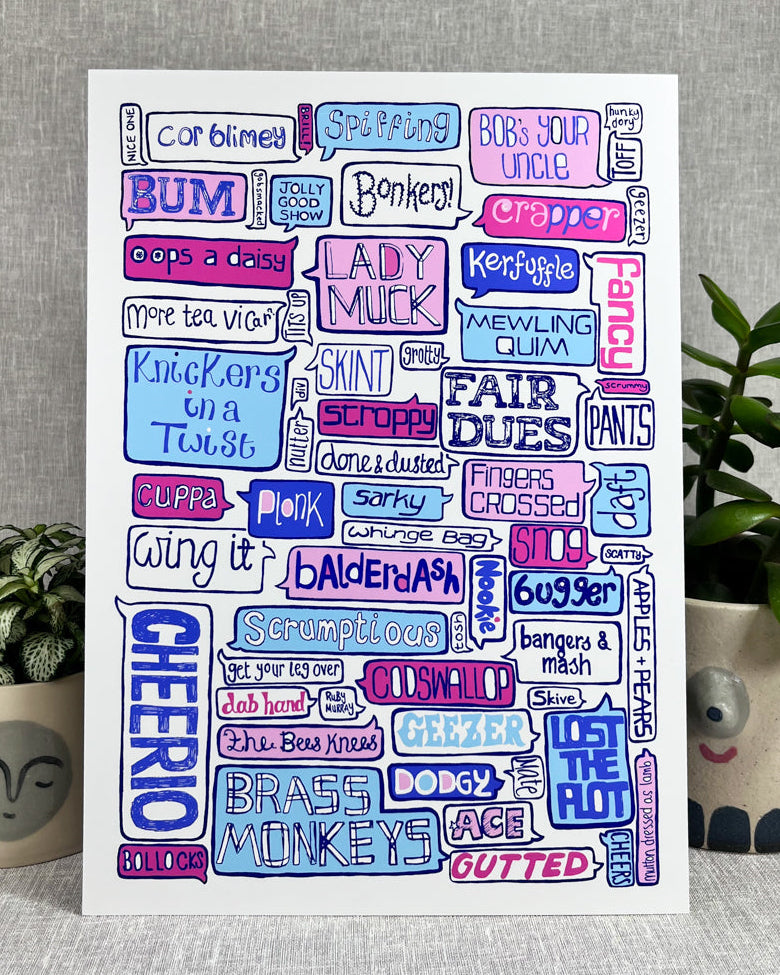 NICE ONE
Cor blimey
BRILL!
Spiffing
BOB'S YOUR
UNCLE
hunky
dory
TOFF
BUM
gobsmacked
JOLLY
GOOD
SHOW
Bonkers!
crapper
geezer
oops a daisy
LADY
MUCK
Kerfuffle
fancy
More tea vicar?
TITS UP
MEWLING
QUIM
Knickers
in a
Twist
SKINT
grotty
div
FAIR
DUES
scrummy
PANTS
stroppy
nutter
done & dusted
CUPPA
Plonk
sarky
Fingers
CROSSED
daft
Wing it
whinge Bag
snog
SCATTY
bAlDERdASh
Nookie
bugger
APPLES + PEARS
CHEERIO
Scrumptious
tosh
bangers &
mash
get your leg over
CODSWALLOP
dab hand
RUBY
MURRAY
Skive
the Bees Knees
GEEZER
LOST
THE
PLOT
BRASS
MONKEYS
DODGY
Mate
mutton dressed as lamb
ACE
BOLLOCKS
GUTTED
CHEERS